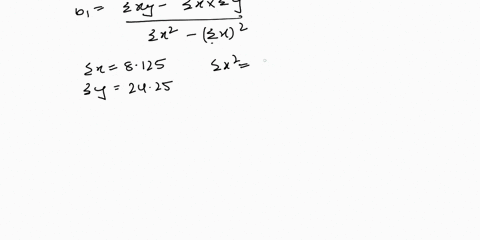 b₁ = Σxy - Σx×Σy
Σx² - (Σx)²
Σx = 8.125 Σx² =
Σy = 24.25